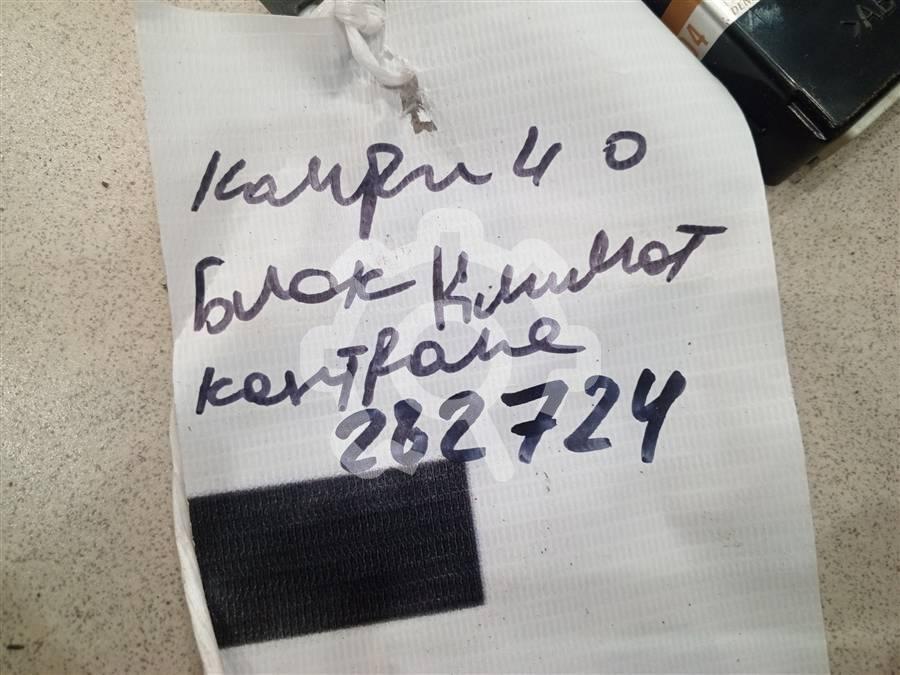 Камри 40
блок климат
контроле
282724
4
DEN
>AB